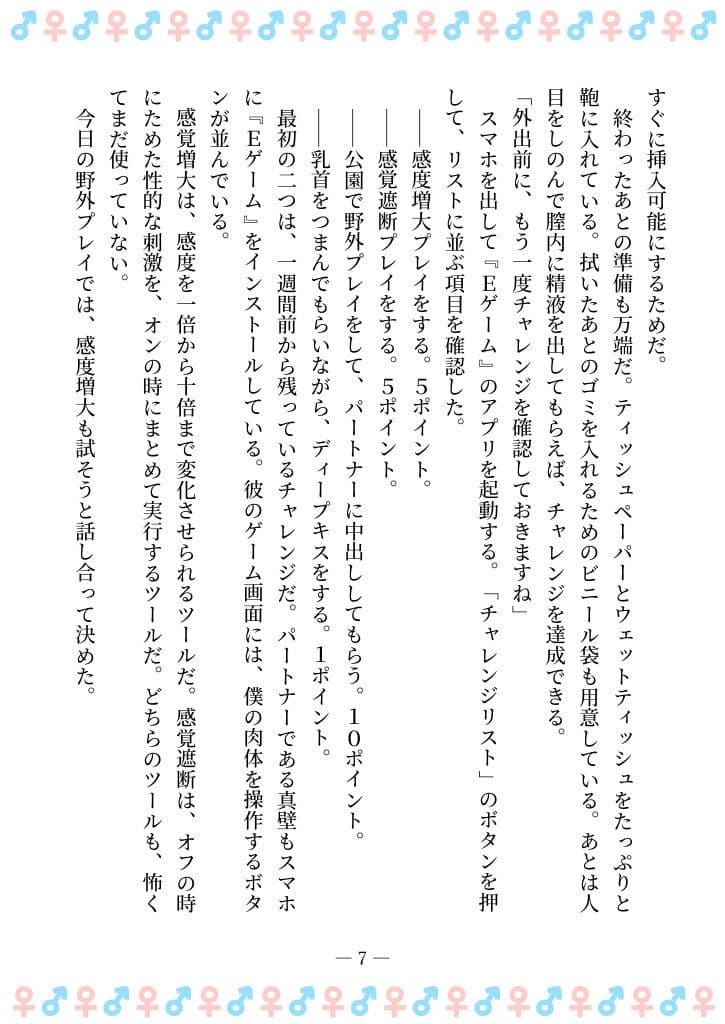 すぐに挿入可能にするためだ。
　終わったあとの準備も万端だ。ティッシュペーパーとウェットティッシュをたっぷりと
鞄に入れている。拭いたあとのゴミを入れるためのビニール袋も用意している。あとは人
目をしのんで膣内に精液を出してもらえば、チャレンジを達成できる。
「外出前に、もう一度チャレンジを確認しておきますね」
　スマホを出して『Ｅゲーム』のアプリを起動する。「チャレンジリスト」のボタンを押
して、リストに並ぶ項目を確認した。
　――感度増大プレイをする。５ポイント。
　――感覚遮断プレイをする。５ポイント。
　――公園で野外プレイをして、パートナーに中出ししてもらう。１０ポイント。
　――乳首をつまんでもらいながら、ディープキスをする。１ポイント。
　最初の二つは、一週間前から残っているチャレンジだ。パートナーである真壁もスマホ
に『Ｅゲーム』をインストールしている。彼のゲーム画面には、僕の肉体を操作するボタ
ンが並んでいる。
　感覚増大は、感度を一倍から十倍まで変化させられるツールだ。感覚遮断は、オフの時
にためた性的な刺激を、オンの時にまとめて実行するツールだ。どちらのツールも、怖く
てまだ使っていない。
　今日の野外プレイでは、感度増大も試そうと話し合って決めた。
― 7 ―